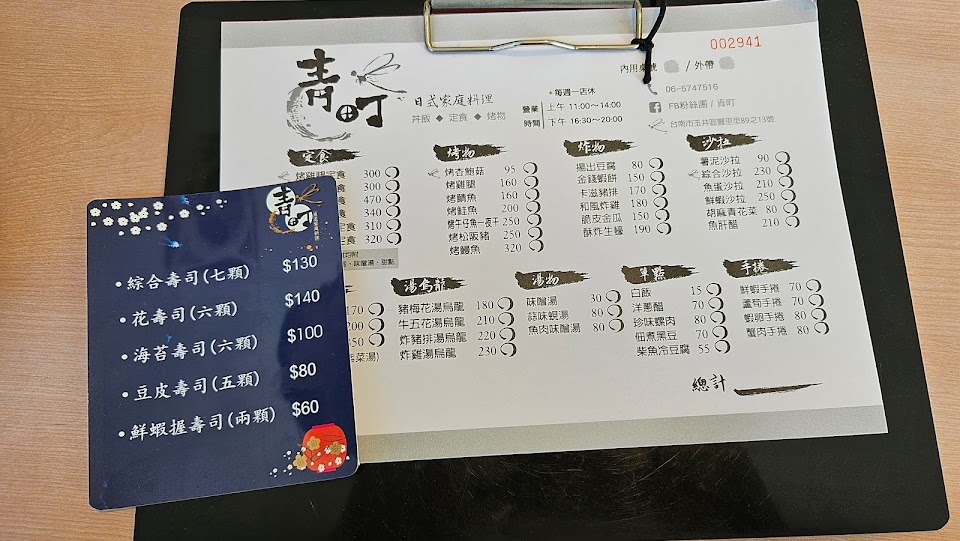 002941
青町
日式家庭料理
丼飯 ◆ 定食 ◆ 烤物
•每週一店休
營業時間
上午 11:00～14:00
下午 16:30～20:00
內用桌號 / 外帶
06-5747516
FB粉絲團 / 青町
台南市玉井區豐里里89之13號
定食
烤雞腿定食 300
食 300
食 470
食 340
定食 310
定食 320
味噌湯、甜點
烤物
烤杏鮑菇 95
烤雞腿 160
烤鯖魚 160
烤鮭魚 200
烤午仔魚一夜干 250
烤松阪豬 250
烤鰻魚 320
炸物
揚出豆腐 80
金錢蝦餅 150
卡滋豬排 170
和風炸雞 180
脆皮金瓜 150
酥炸生蠔 190
沙拉
薯泥沙拉 90
綜合沙拉 230
魚蛋沙拉 210
鮮蝦沙拉 250
胡麻青花菜 80
魚肝醋 210
170
200
350
湯烏龍
豬梅花湯烏龍 180
牛五花湯烏龍 210
炸豬排湯烏龍 220
炸雞湯烏龍 230
湯物
味噌湯 30
蒜味蜆湯 80
魚肉味噌湯 80
單點
白飯 15
洋蔥醋 70
珍味螺肉 80
佃煮黑豆 70
柴魚冷豆腐 55
手捲
鮮蝦手捲 70
蘆筍手捲 70
蝦卵手捲 80
蟹肉手捲 80
總計
青町
日式家庭料理
•綜合壽司(七顆) $130
•花壽司(六顆) $140
•海苔壽司(六顆) $100
•豆皮壽司(五顆) $80
•鮮蝦握壽司(兩顆) $60